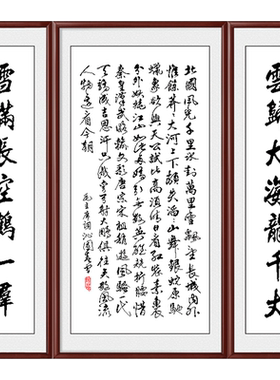 雲歸大海龍千丈
北國風光千里冰封萬里雪飄望長城內外
惟餘莽莽大河上下頓失滔滔山舞銀蛇原馳
蠟象欲與天公試比高須晴日看紅裝素裹
分外妖嬈江山如此多嬌引無數英雄競折腰惜
秦皇漢武略輸文采唐宗宋祖稍遜風騷一代
天驕成吉思汗只識彎弓射大雕俱往矣數風流
人物還看今朝
毛主席詞沁園春雪
雪滿長空鶴一群